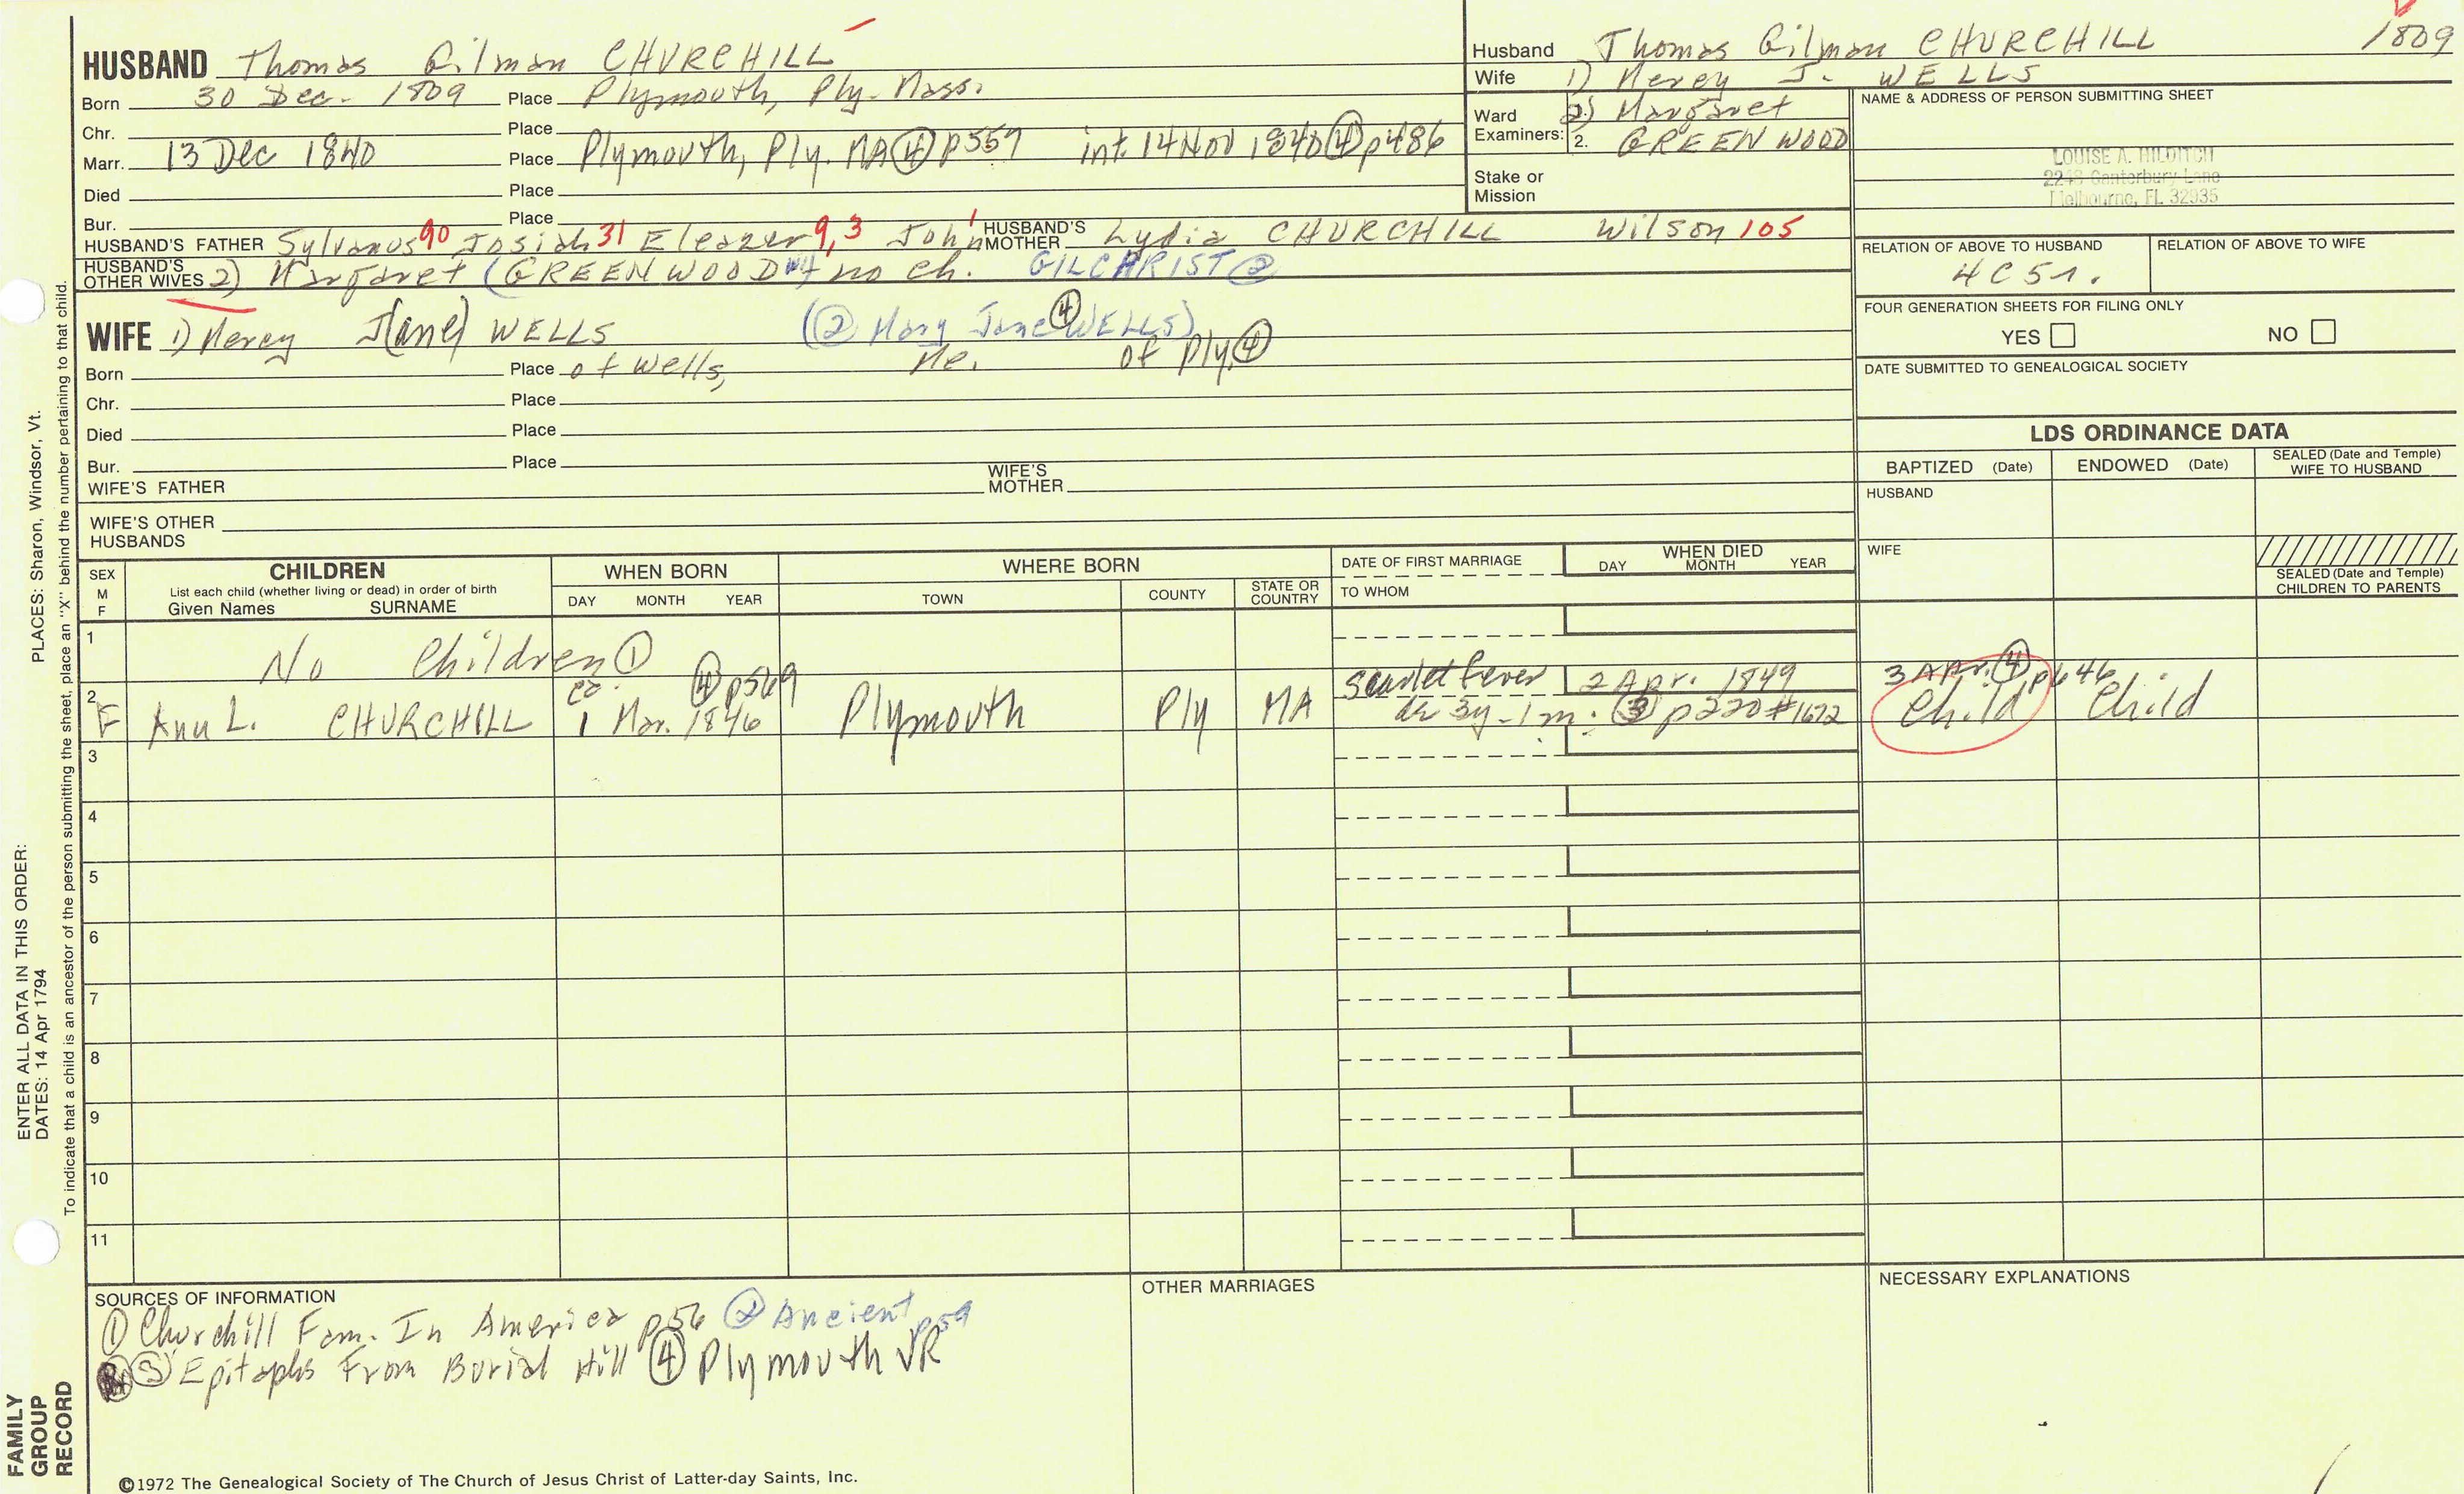 HUSBAND Thomas Gilman CHURCHILL
Born 30 Dec. 1809 Place Plymouth, Ply. Mass.
Chr. Place
Marr. 13 Dec 1840 Place Plymouth, Ply. MA ④ p559 int. 14 Nov 1840 ④ p486
Died Place
Bur. Place
HUSBAND'S FATHER Sylvanus 90 Josiah 31 Eleazer 9,3 John 1 HUSBAND'S MOTHER Lydia CHURCHILL Wilson 105
HUSBAND'S OTHER WIVES 2) Margaret (GREENWOOD) no ch. GILCHRIST ②
Husband Thomas Gilman CHURCHILL 1809
Wife 1) Mercy J. WELLS
Ward 2) Margaret
Examiners: 2. GREENWOOD
Stake or Mission
NAME & ADDRESS OF PERSON SUBMITTING SHEET
LOUISE A. HILDITCH
2248 Canterbury Lane
Melbourne, FL 32935
RELATION OF ABOVE TO HUSBAND
4C5r.
RELATION OF ABOVE TO WIFE
FOUR GENERATION SHEETS FOR FILING ONLY
YES NO
DATE SUBMITTED TO GENEALOGICAL SOCIETY
WIFE 1) Mercy J(ane) WELLS (② Mary Jane ④ WELLS)
Born Place of Wells, Me. of Ply. ④
Chr. Place
Died Place
Bur. Place
WIFE'S FATHER WIFE'S MOTHER
WIFE'S OTHER HUSBANDS
LDS ORDINANCE DATA
BAPTIZED (Date) ENDOWED (Date) SEALED (Date and Temple) WIFE TO HUSBAND
HUSBAND
WIFE
SEALED (Date and Temple) CHILDREN TO PARENTS
SEX M F
CHILDREN
List each child (whether living or dead) in order of birth
Given Names SURNAME
WHEN BORN
DAY MONTH YEAR
WHERE BORN
TOWN COUNTY STATE OR COUNTRY
DATE OF FIRST MARRIAGE
TO WHOM
WHEN DIED
DAY MONTH YEAR
1 No Children ①
2 ca. ④ p569 Scarlet fever 2 Apr. 1849 3 Apr. ④ p646
F Ann L. CHURCHILL 1 Mar. 1846 Plymouth Ply MA ae 3y-1m. ③ p220 #1672 Child Child
3
4
5
6
7
8
9
10
11
SOURCES OF INFORMATION
① Churchill Fam. In America p56 ② Ancient p59
③ Epitaphs From Burial Hill ④ Plymouth VR
OTHER MARRIAGES
NECESSARY EXPLANATIONS
©1972 The Genealogical Society of The Church of Jesus Christ of Latter-day Saints, Inc.
FAMILY GROUP RECORD
ENTER ALL DATA IN THIS ORDER:
DATES: 14 Apr 1794 PLACES: Sharon, Windsor, Vt.
To indicate that a child is an ancestor of the person submitting the sheet, place an "X" behind the number pertaining to that child.